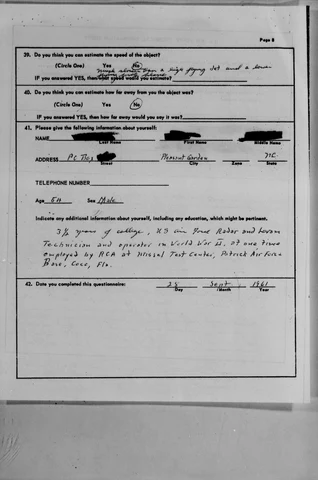 Page 8
39. Do you think you can estimate the speed of the object?
(Circle One) Yes No
much slower than a high flying jet and a low
IF you answered YES, then what speed would you estimate?
40. Do you think you can estimate how far away from you the object was?
(Circle One) Yes No
IF you answered YES, then how far away would you say it was?
41. Please give the following information about yourself:
NAME
Last Name First Name Middle Name
ADDRESS P.O. Box Pleasant Garden N.C.
Street City Zone State
TELEPHONE NUMBER
Age Sex Male
Indicate any additional information about yourself, including any education, which might be pertinent.
3½ years of college, U.S. Air Force Radar and Loran
Technician and operator in World War II. At one time
employed by RCA at Missal Test Center, Patrick Air Force
Base, Coco, Fla.
42. Date you completed this questionnaire: 28 Sept 1961
Day Month Year